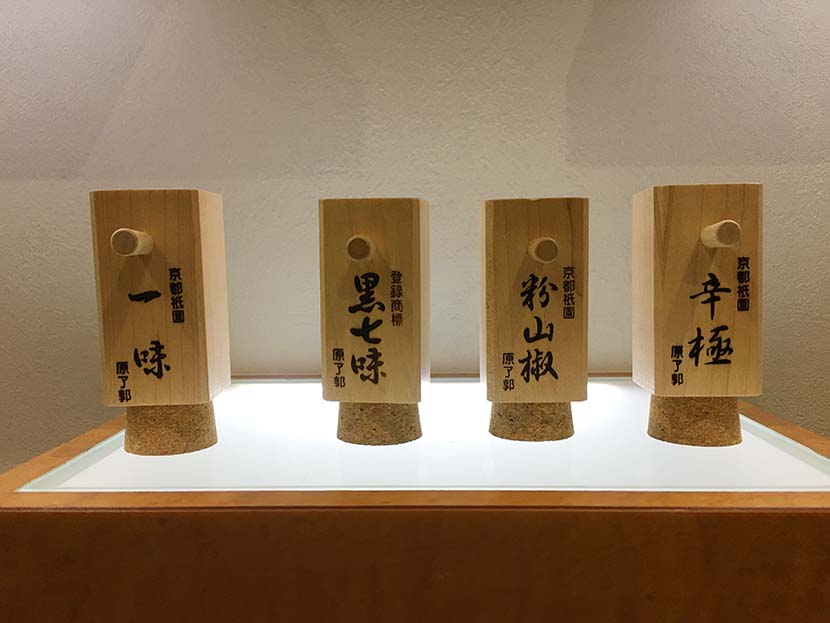 京都祇園
一味
原了郭
登録商標
黒七味
原了郭
京都祇園
粉山椒
原了郭
京都祇園
辛極
原了郭